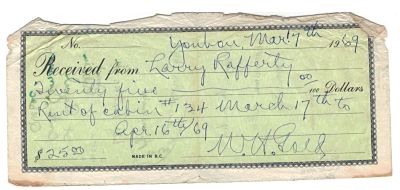 No. Youbou Mar. 17th 1969
Received from Larry Rafferty
Seventy five 00/100 Dollars
Rent of cabin #134 March 17th to
Apr 16th/69
$25.00 MADE IN B.C. W.H.